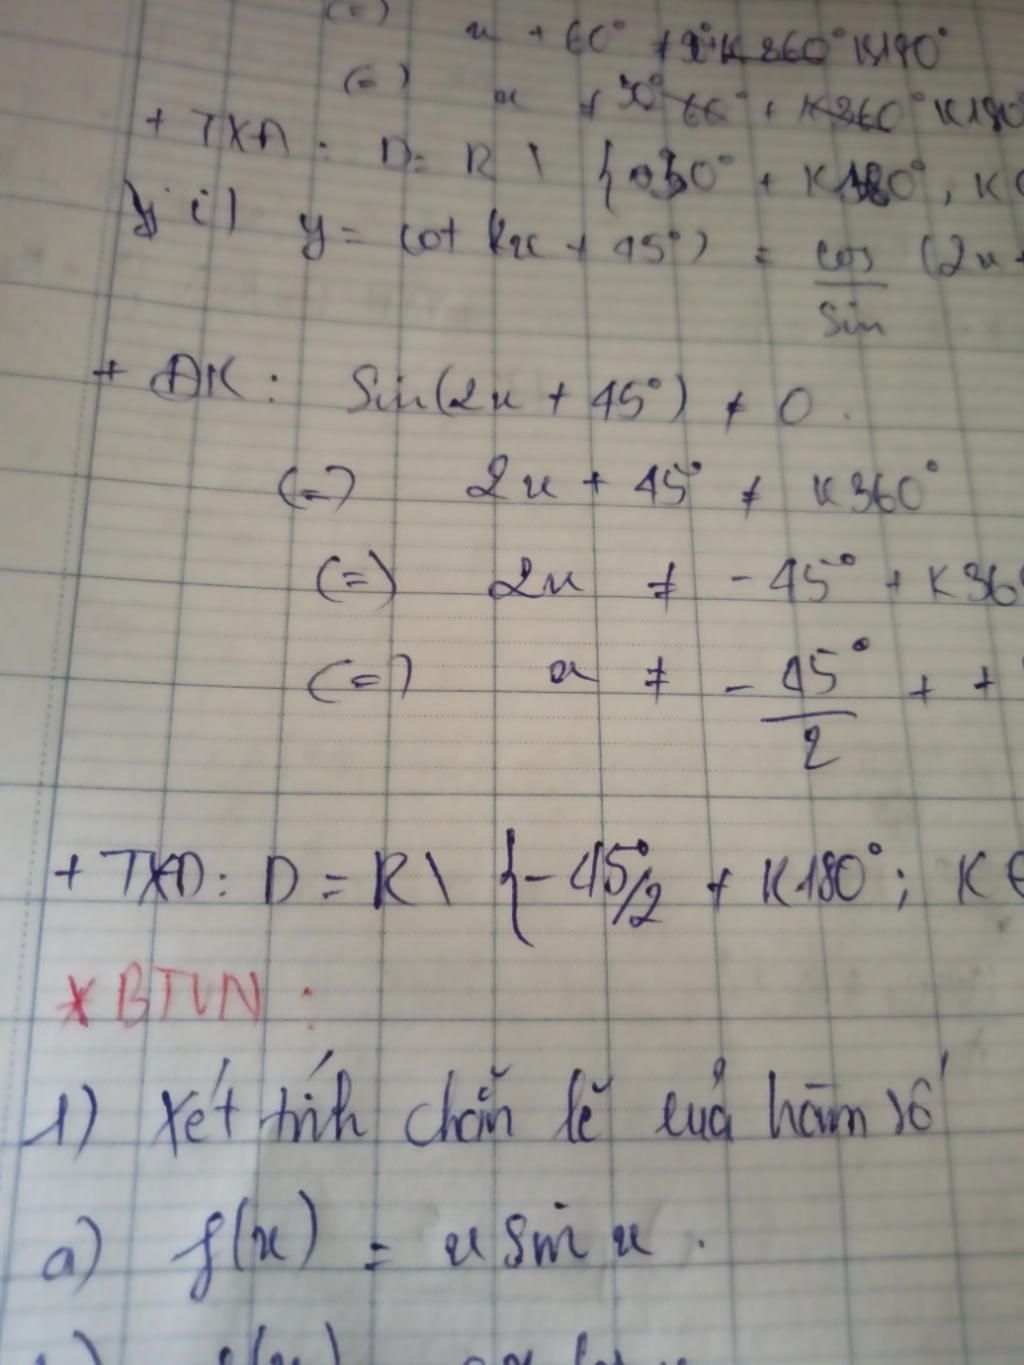 (=) x + 60° ≠ 90° + K360° K180°
(=) x ≠ 30° 60° + K360° K180°
+ TXĐ : D = R \ { 30° + K180°, K
i) y = cot (2x + 45°) = cos (2x +
sin
+ ĐK : Sin(2x + 45°) ≠ 0 .
(=) 2x + 45° ≠ K360°
(=) 2x ≠ - 45° + K36
(=) x ≠ - 45° + +
2
+ TXD : D = R \ { - 45°/2 + K180° ; K €
* BTVN :
1) Xét tính chẵn lẽ của hàm số
a) f(x) = x sin x .